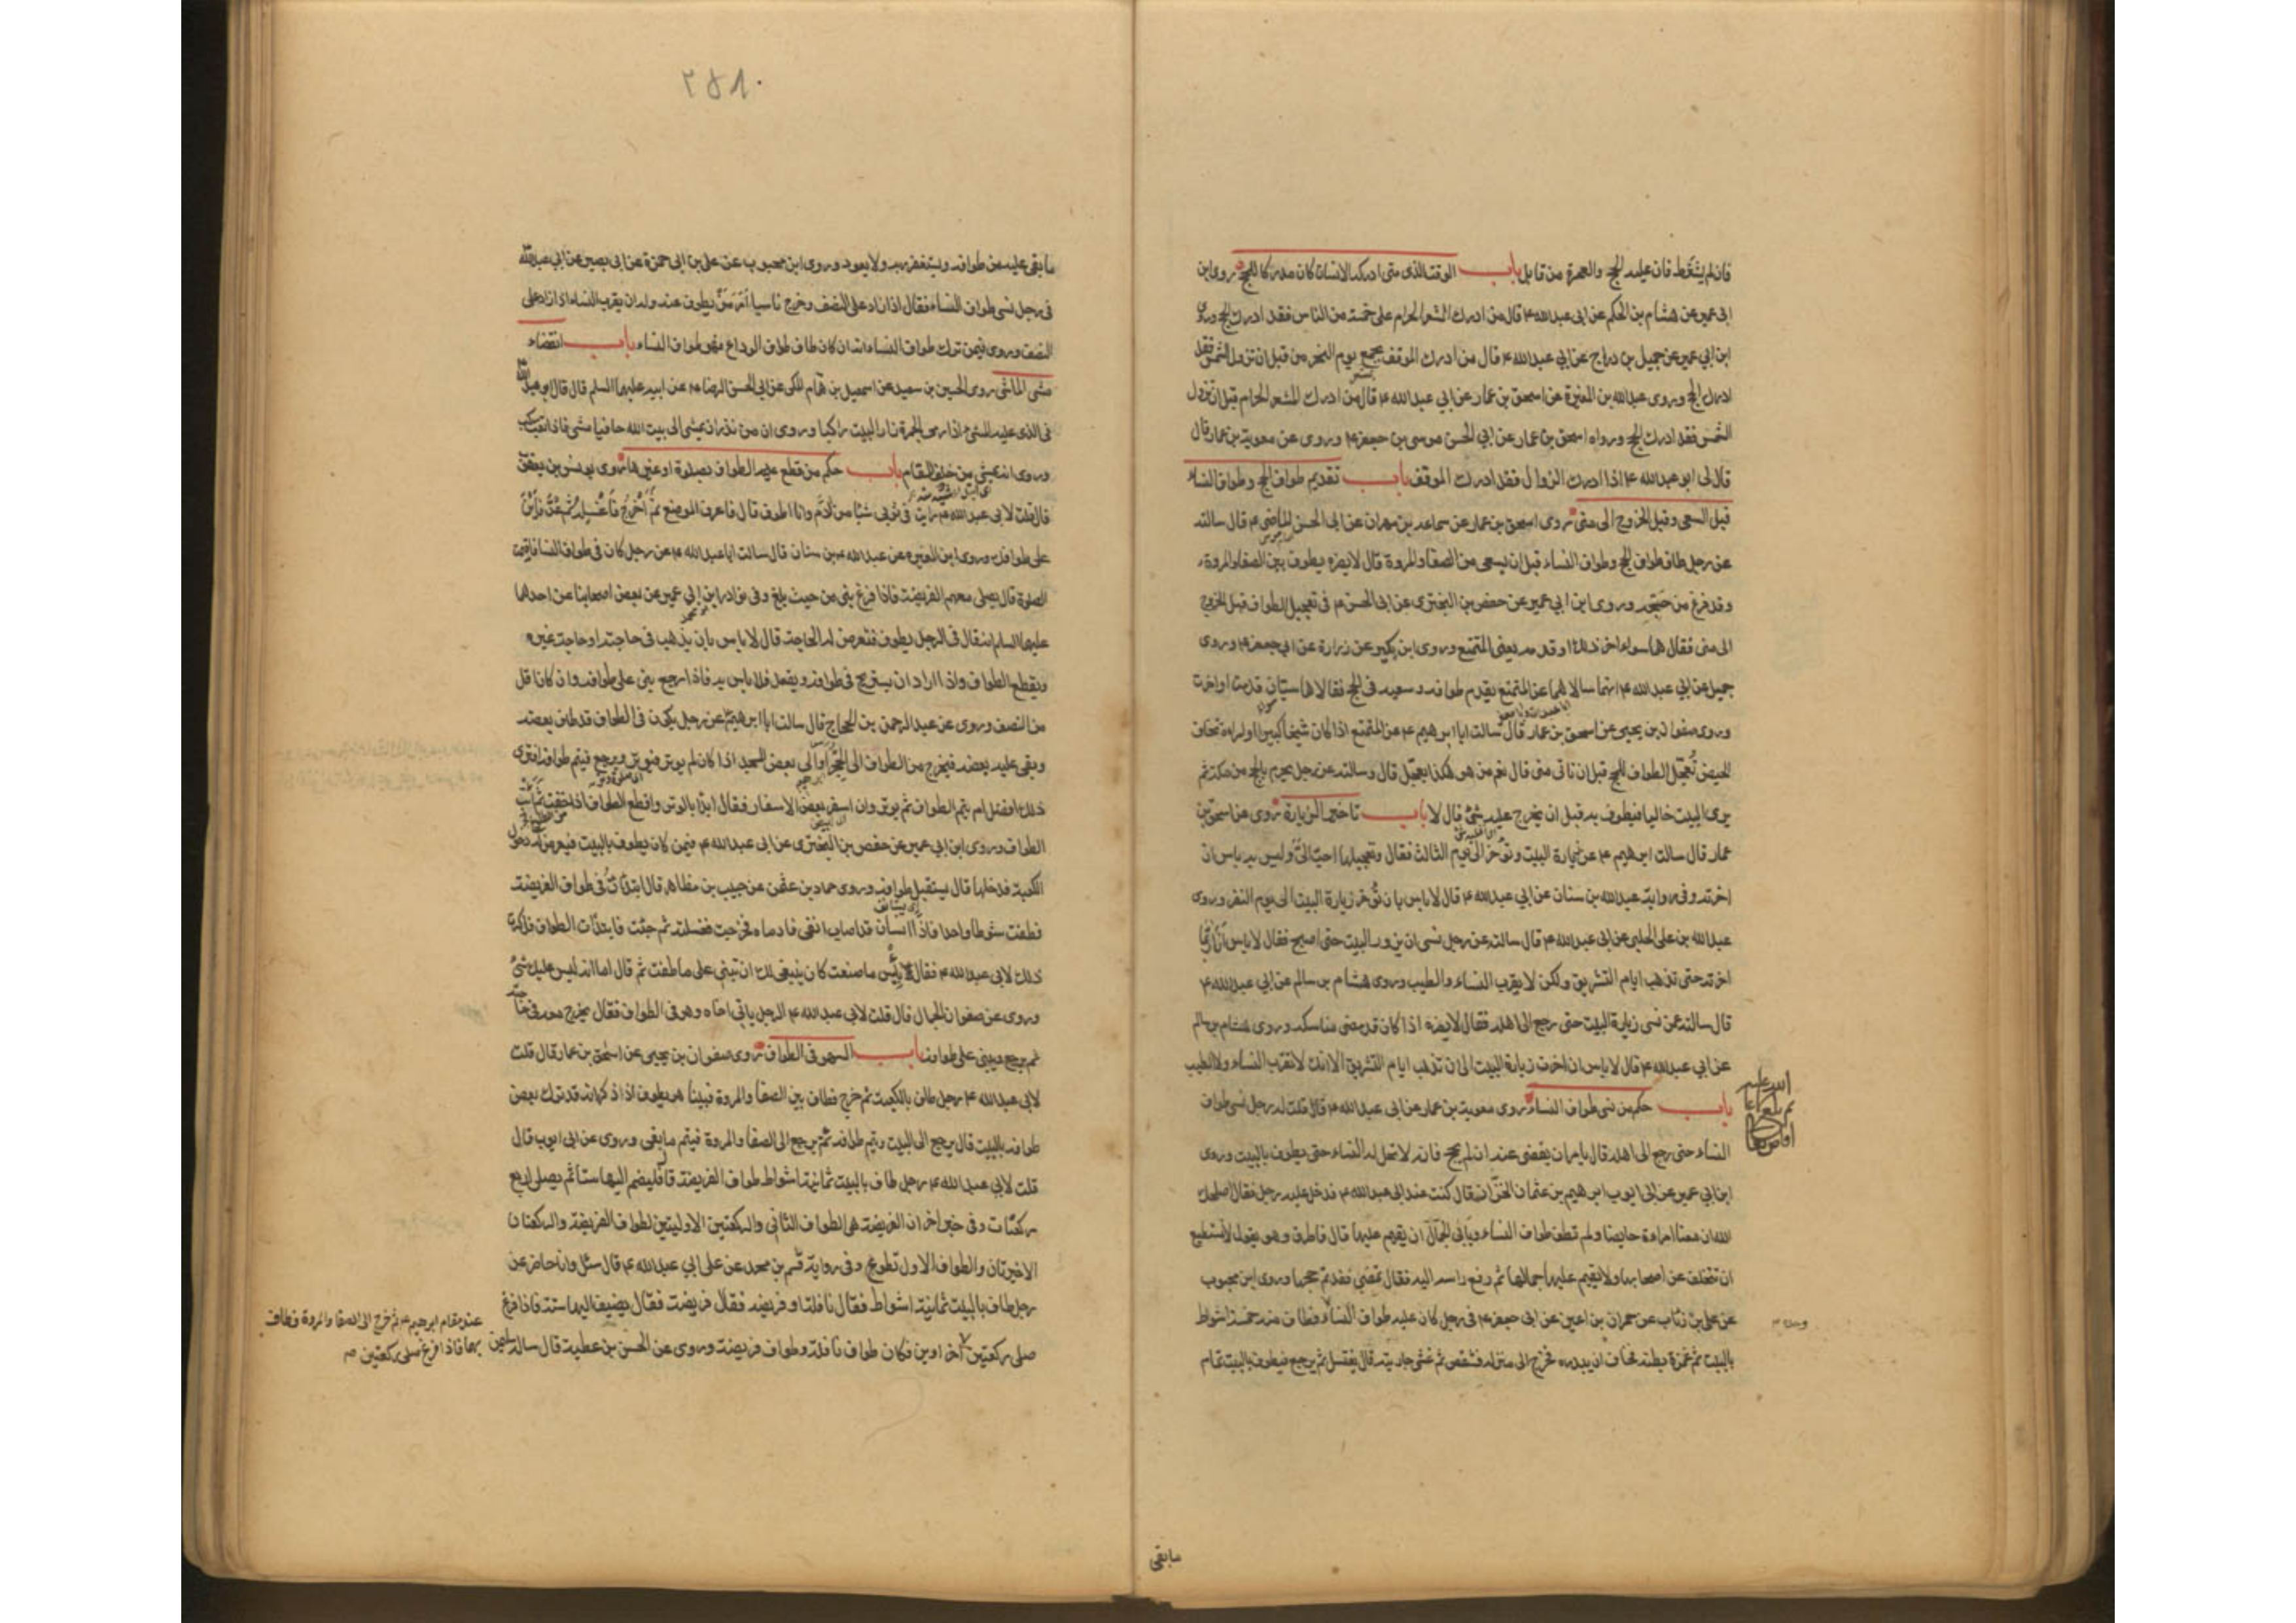 فان لم يشترط فان عليه الحج والعمرة من قابل باب الوقت الذى متى ادركه الانسان كان مدركا للحج روى ابن
ابى عمير عن هشام بن الحكم عن ابى عبد الله ع قال من ادرك المشعر الحرام على خمسة من الناس فقد ادرك الحج وروى
ابن ابي عمير عن جميل بن دراج عن ابي عبد الله ع قال من ادرك الموقف بجمع يوم النحر من قبل ان تزول الشمس فقد
ادرك الحج وروى عبد الله بن المغيرة عن اسحق بن عمار عن ابي عبد الله ع قال من ادرك المشعر الحرام قبل ان تزول
الشمس فقد ادرك الحج ورواه اسحق بن عمار عن ابي الحسن موسى بن جعفر ع وروى عن معوية بن عمار قال
قال لى ابو عبد الله ع اذا ادرك الزوال فقد ادرك الموقف باب تقديم طواف الحج وطواف النساء
قبل السعى وقبل الخروج الى منى روى اسحق بن عمار عن سماعة بن مهران عن ابى الحسن الماضى ع قال سالته
عن رجل طاف طواف الحج وطواف النساء قبل ان يسعى من الصفا والمروة قال لا يضره يطوف بين الصفا والمروة
وقد فرغ من حجه وروى ابن ابي عمير عن حفص بن البخترى عن ابى الحسن ع فى تعجيل الطواف قبل الخروج
الى منى فقال هما سواء اخر ذلك او قدمه يعنى المتمتع وروى ابن بكير عن زرارة عن ابي جعفر ع وروى
جميل عن ابي عبد الله ع انهما سالاهما عن المتمتع يقدم طوافه وسعيه فى الحج فقالا هما سيّان قدمت او اخرت
وروى صفوان بن يحيى عن اسحق بن عمار قال سالت ابا ابرهيم ع عن المتمتع اذا كان شيخا كبيرا او امراة تخاف
الحيض تُعجّل الطواف للحج قبل ان تاتى منى قال نعم من هو هكذا يعجّل قال وسالته عن رجل يحرم بالحج من مكة ثم
يرى البيت خاليا فيطوف به قبل ان يخرج عليه شئ قال لا باب تاخير الزيارة روى عن اسحق بن
عمار قال سالت ابرهيم ع عن زيارة البيت تؤخر الى يوم الثالث فقال وتعجيلها احبّ الىّ وليس به باس ان
اخرته وفى رواية عبد الله بن سنان عن ابي عبد الله ع قال لا باس بان تؤخر زيارة البيت الى يوم النفر وروى
عبد الله بن على الحلبى عن ابى عبد الله ع قال سالته عن رجل نسى ان يزور البيت حتى اصبح فقال لا باس انا ربما
اخرته حتى تذهب ايام التشريق ولكن لا يقرب النساء والطيب وروى هشام بن سالم عن ابي عبد الله ع
قال سالته عمن نسى زيارة البيت حتى رجع الى اهله فقال لا يضره اذا كان قد قضى مناسكه وروى هشام بن سالم
عن ابي عبد الله ع قال لا باس ان اخرت زيارة البيت الى ان تذهب ايام التشريق الا انك لا تقرب النساء ولا الطيب
باب حكم من نسى طواف النساء روى معوية بن عمار عن ابى عبد الله ع قال قلت له رجل نسى طواف
النساء حتى رجع الى اهله قال يامر ان يقضى عنه ان لم يحج فانه لا تحل له النساء حتى يطوف بالبيت وروى
ابن ابي عمير عن ابى ايوب ابرهيم بن عثمان الخزّاز قال كنت عند ابى عبد الله ع فدخل عليه رجل فقال اصلحك
الله ان معنا امراة حايضا ولم تطف طواف النساء ويابى الجمّال ان يقيم عليها قال فاطرق وهو يقول لا تستطيع
ان تتخلف عن اصحابها ولا يقيم عليها جمالها ثم رفع راسه اليه فقال تمضى فقد تم حجها وروى ابن محبوب
عن على بن رئاب عن حمران بن اعين عن ابى جعفر ع فى رجل كان عليه طواف النساء فطاف منه خمسة اشواط
بالبيت ثم غمزه بطنه فخاف ان يبدره فخرج الى منزله فشقص ثم غشى جاريته قال يغتسل ثم يرجع فيطوف بالبيت تمام
مابقى
۲۵۱
مابقى عليه من طوافه ويستغفر ربه ولا يعود وروى ابن محبوب عن على بن ابى حمزة عن ابى بصير عن ابى عبد الله
فى رجل نسى طواف النساء فقال اذا زاد على النصف وخرج ناسيا اَمَرَ مَنْ يطوف عنه وله ان يقرب النساء اذا زاد على
النصف وروى فيمن ترك طواف النساء انه ان كان طاف طواف الوداع فهو طواف النساء باب انقضاء
مشى الماشى روى الحسين بن سعيد عن اسمعيل بن همام المكى عن ابى الحسن الرضا ع عن ابيه عليهما السلم قال قال ابو عبد الله
فى الذى عليه المشى اذا رمى الجمرة زار البيت راكبا وروى ان من نذر ان يمشى الى بيت الله حافيا مشى فاذا تعب ركب
وروى انه يمشى من خلف المقام باب حكم من قطع عليه الطواف بصلوة او غيرها روى يونس بن يعقوب
قال قلت لابى عبد الله ع رايت فى ثوبى شيئا من دم وانا اطوف قال فاعرف الموضع ثم اخرج فاغسله ثم عد فابن
على طوافك وروى ابن المغيره عن عبد الله بن سنان قال سالت ابا عبد الله ع عن رجل كان فى طواف النساء فاقيمت
الصلوة قال يصلى معهم الفريضة فاذا فرغ بنى من حيث بلغ وفى نوادر ابن ابي عمير عن بعض اصحابنا عن احدهما
عليهما السلم انه قال فى الرجل يطوف فتعرض له الحاجة قال لا باس بان يذهب فى حاجته او حاجة غيره
ويقطع الطواف واذا اراد ان يستريح فى طوافه ويقعد فلا باس به فاذا رجع بنى على طوافه وان كان اقل
من النصف وروى عن عبد الرحمن بن الحجاج قال سالت ابا ابرهيم عن رجل يكون فى الطواف قد طاف بعضه
وبقى عليه بعضه فيخرج من الطواف الى الحجر او الى بعض المسجد اذا كان لم يوتر فيوتر ويرجع فيتم طوافه افترى
ذلك افضل ام يتم الطواف ثم يوتر وان اسفر بعض الاسفار فقال ابدا بالوتر واقطع الطواف اذا خفت ثم ائت
الطواف وروى ابن ابي عمير عن حفص بن البخترى عن ابى عبد الله ع فيمن كان يطوف بالبيت فيعرض له دخول
الكعبة فدخلها قال يستقبل طوافه وروى حماد بن عثمن عن حبيب بن مظاهر قال ابتدات فى طواف الفريضة
فطفت شوطا واحدا فاذا انسان قد اصاب انفى فادماه فخرجت فغسلته ثم جئت فابتدات الطواف فذكرت
ذلك لابى عبد الله ع فقال بئس ما صنعت كان ينبغى لك ان تبنى على ما طفت ثم قال اما انه ليس عليك شئ
وروى عن صفوان الجمال قال قلت لابى عبد الله ع الرجل ياتى اخاه وهو فى الطواف فقال يخرج معه فى حاجته
ثم يرجع ويبنى على طوافه باب السهو فى الطواف روى صفوان بن يحيى عن اسحق بن عمار قال قلت
لابى عبد الله ع رجل طاف بالكعبة ثم خرج فطاف بين الصفا والمروة فبينا هو يطوف اذ ذكر انه قد ترك بعض
طوافه بالبيت قال يرجع الى البيت ويتم طوافه ثم يرجع الى الصفا والمروة فيتم مابقى وروى عن ابى ايوب قال
قلت لابي عبد الله ع رجل طاف بالبيت ثمانية اشواط طواف الفريضة قال فليضم اليها ستا ثم يصلى اربع
ركعات وفى خبر اخر ان الفريضة هى الطواف الثانى والركعتين الاوليتين لطواف الفريضة والركعتان
الاخيرتان والطواف الاول تطوع وفى رواية قسم بن محمد عن على ابي عبد الله ع قال سئل وانا حاضر عن
رجل طاف بالبيت ثمانية اشواط فقال نافلة او فريضه فقال فريضة فقال يضيف اليها ستة فاذا فرغ
صلى ركعتين اخراوين فكان طواف نافلة وطواف فريضة وروى عن الحسن بن عطية قال ساله سليمن
عند مقام ابرهيم ع ثم خرج الى الصفا والمروة فطاف
بهما فاذا فرغ صلى ركعتين